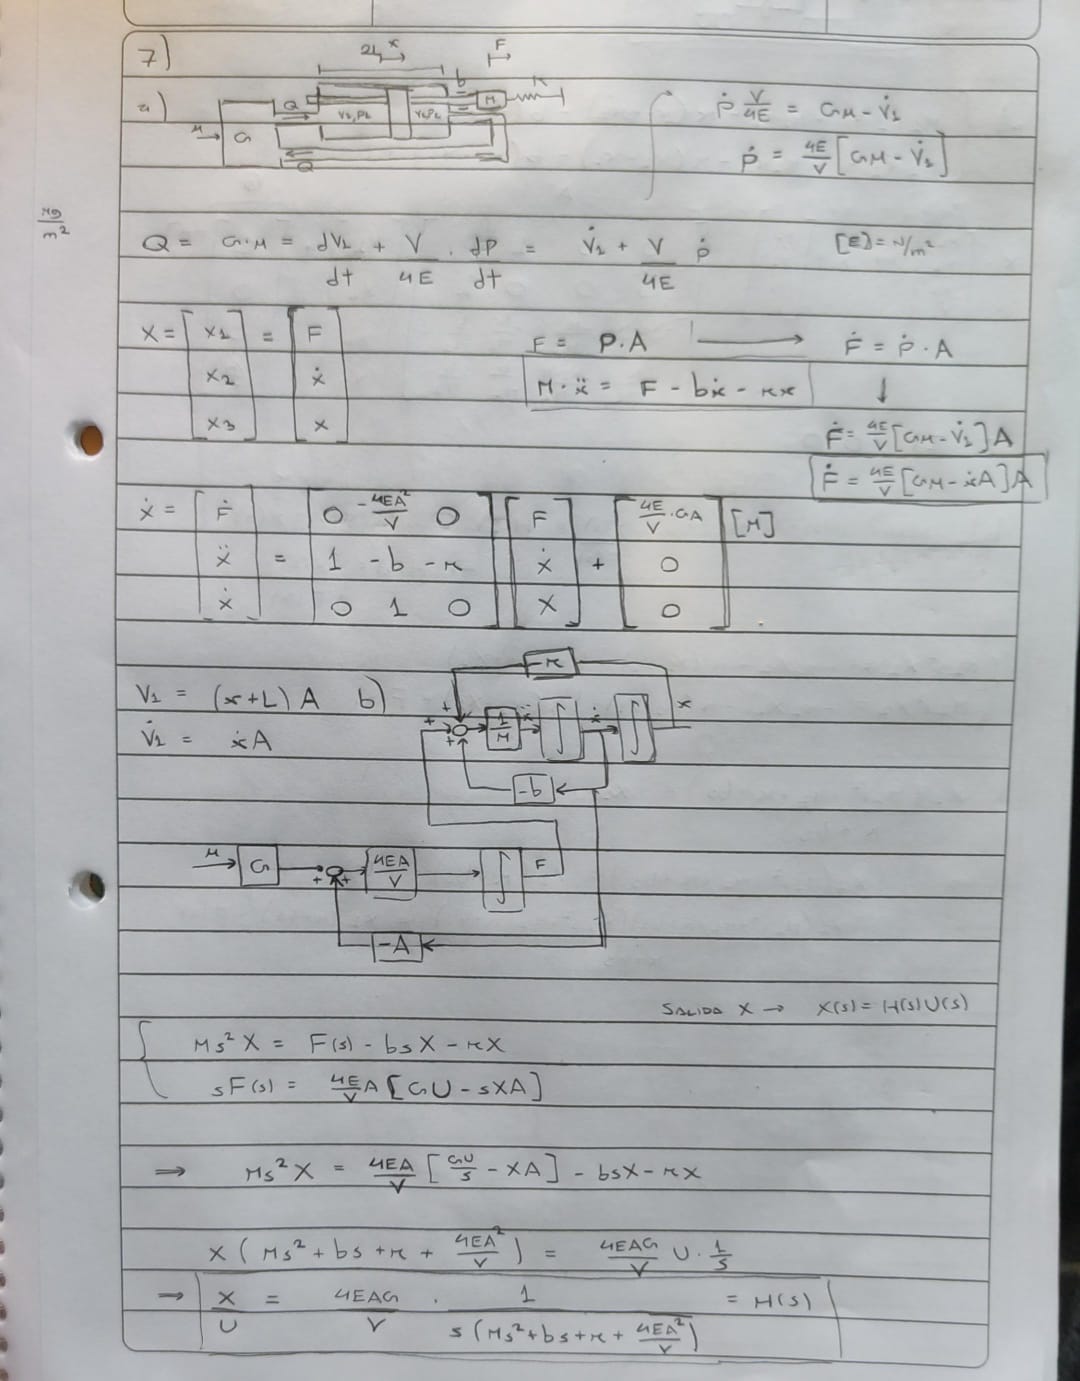 7)
2L x F
a) u G Q V1,P1 V2,P2 b M K
Q
ṗ V/4E = Gu - V̇1
ṗ = 4E/V [Gu - V̇1]
Kg/m²
Q = G·u = dV1/dt + V/4E · dP/dt = V̇1 + V/4E ṗ [E] = N/m²
X = [x1 x2 x3] = [F ẋ x]
F = P.A → Ḟ = Ṗ.A
M·ẍ = F - bẋ - kx ↓
Ḟ = 4E/V [Gu - V̇1] A
Ḟ = 4E/V [Gu - ẋA] A
ẋ = [Ḟ ẍ ẋ] = [0 -4EA²/V 0 ; 1 -b -k ; 0 1 0] [F ẋ x] + [4E/V·GA 0 0] [u]
V1 = (x+L) A b)
V̇1 = ẋA
-k
+ + + 1/M ẍ ∫ ẋ ∫ x
-b
u G + + 4EA/V ∫ F
-A
SALIDA X → X(s) = H(s)U(s)
Ms²X = F(s) - bsX - kX
sF(s) = 4E/V A [GU - sXA]
⇒ Ms²X = 4EA/V [GU/s - XA] - bsX - kX
X (Ms² + bs + k + 4EA²/V) = 4EAG/V U · 1/s
⇒ X/U = 4EAG/V · 1/s(Ms² + bs + k + 4EA²/V) = H(s)